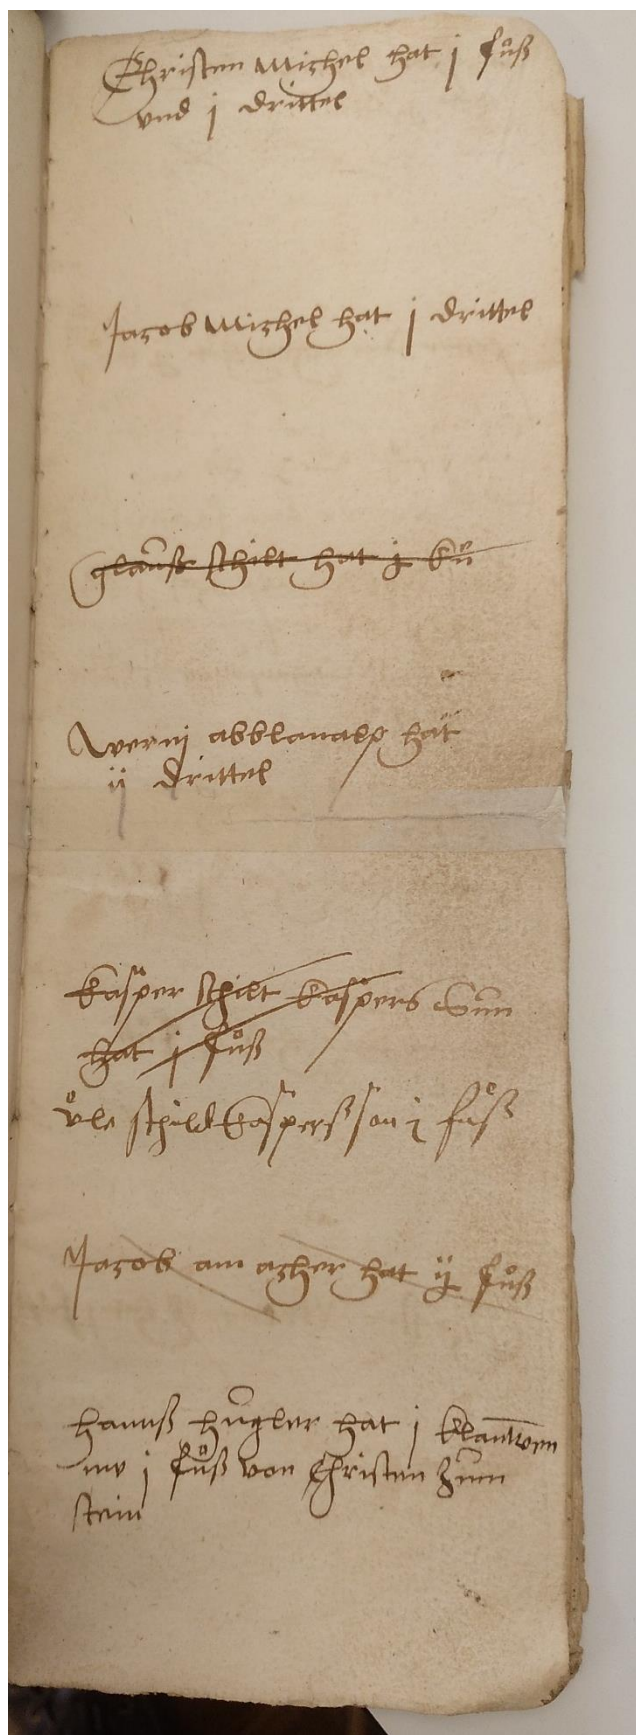 Christen Michel hat j fůß
vnd j drittel
Jacob Michel hat j drittel
glauß schilt hat j ků
werni abblanalp hat
ij drittel
Kasper schilt Kaspers Sun
hat j fůß
ůle schild Kasperß son j fůß
Jacob am acher hat ij fůß
hannß hugler hat j klauwen
me j fůß von Christen zum
stein